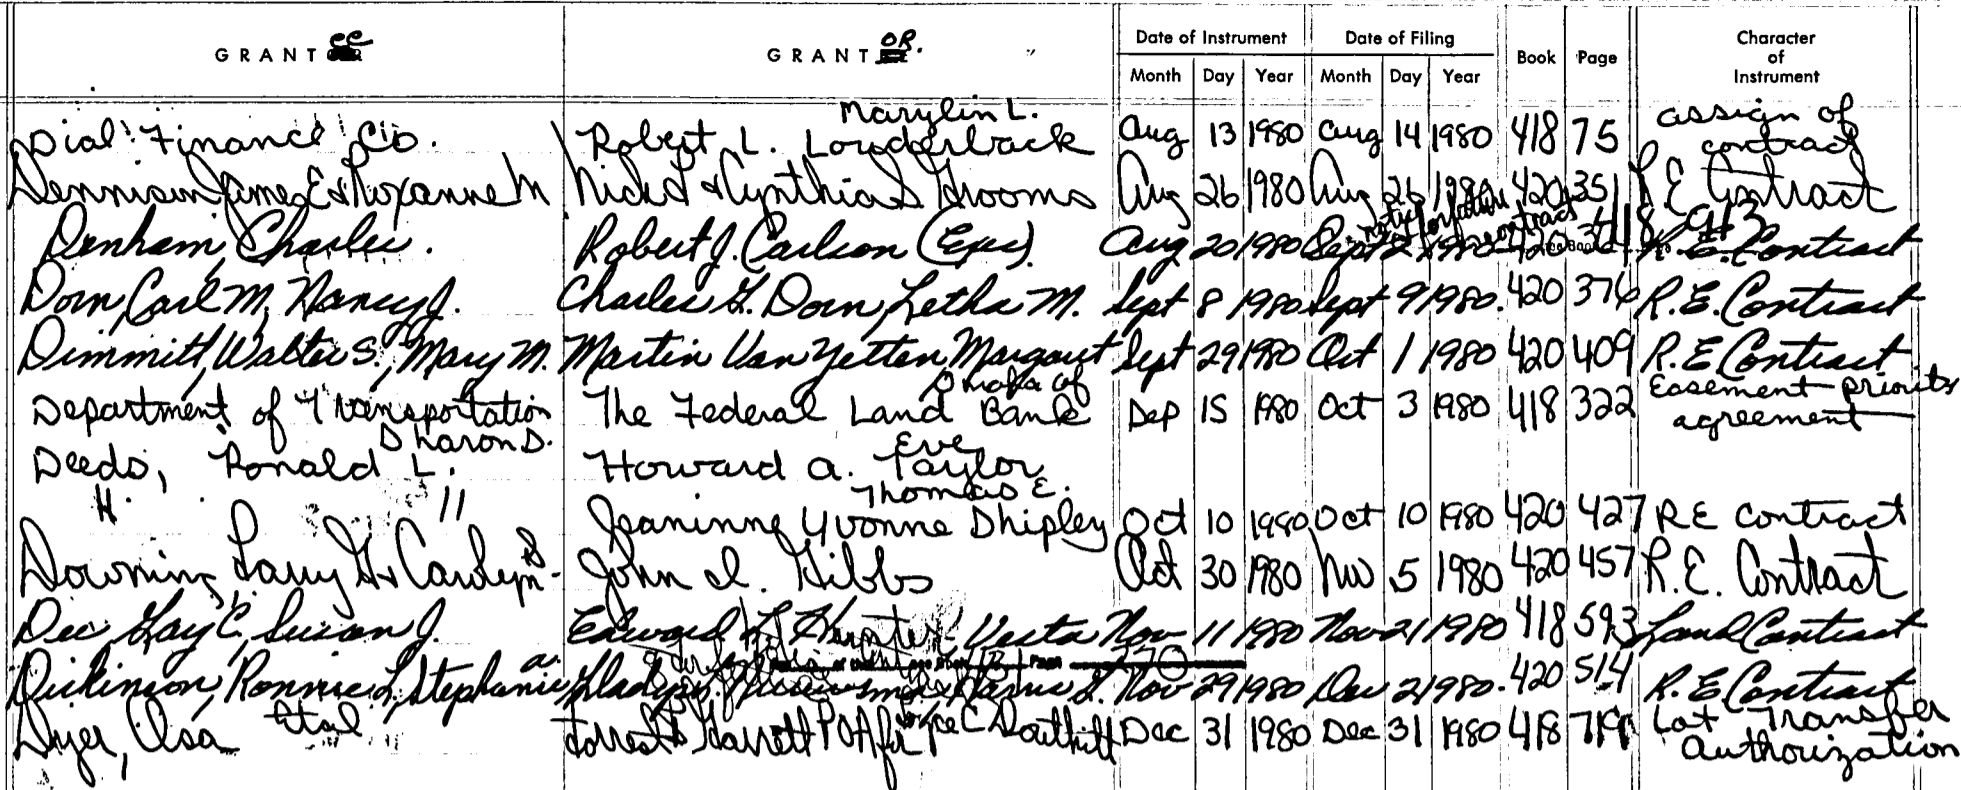 GRANTee GRANTOR. Date of Instrument Date of Filing Book Page Character of Instrument
Month Day Year Month Day Year
Marylin L.
Dial Finance Co. Robert L. Louderback Aug 13 1980 Aug 14 1980 418 75 assign of contract
Dennison James E & Roxanne M Nick & Cynthia S Grooms Aug 26 1980 Aug 26 1980 420 351 R E Contract
contract 418
Denham, Charles. Robert J. Carlson (Exec) Aug 20 1980 Sept 2 1980 420 R.E. Contract
Dorn, Carl M, Nancy J. Charles G. Dorn, Letha M. Sept 8 1980 Sept 9 1980. 420 376 R.E. Contract
Dimmitt, Walter S., Mary M. Martin Van Zetten, Margaret Sept 29 1980 Oct 1 1980 420 409 R.E Contract
Omaha of
Department of Transportation The Federal Land Bank Sep 15 1980 Oct 3 1980 418 322 Easement priority agreement
Sharon D. Eve
Deeds, Ronald L. Howard A. Taylor
Thomas E.
" " Jeaninne Yvonne Shipley Oct 10 1980 Oct 10 1980 420 427 RE Contract
Downing Larry G & Carolyn S John I. Gibbs Oct 30 1980 Nov 5 1980 420 457 R.E. Contract
Dee Gay C, Susan J. Edward L. Hunter Vesta Nov 11 1980 Nov 21 1980 418 593 Land Contract
370
Dickinson, Ronnie L, Stephanie a. Gladys Nov 29 1980 Dec 2 1980. 420 514 R.E Contract
Dyer, Asa etal Forrest Garrett POA for C Douthitt Dec 31 1980 Dec 31 1980 418 Lot Transfer Authorization